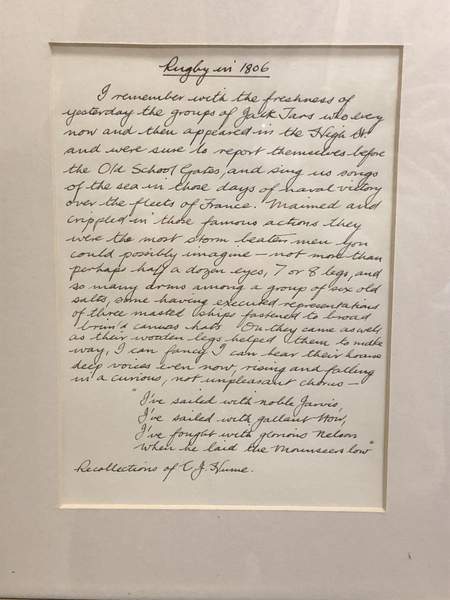 Rugby in 1806
I remember with the freshness of
yesterday the groups of Jack Tars who every
now and then appeared in the High St.
and were sure to report themselves before
the Old School Gates, and sing us songs
of the sea in those days of naval victory
over the fleets of France. Maimed and
crippled in those famous actions they
were the most storm beaten men you
could possibly imagine – not more than
perhaps half a dozen eyes, 7 or 8 legs, and
so many arms among a group of six old
salts, some having executed representations
of three masted ships fastened to broad
brim'd canvas hats. On they came as well
as their wooden legs helped them to make
way, I can fancy I can hear their hoarse
deep voices even now, rising and falling
in a curious, not unpleasant chorus –
"I've sailed with noble Jarvis,
I've sailed with gallant How,
I've fought with glorious Nelson
When he laid the Mounseers low"
Recollections of C J. Hume.